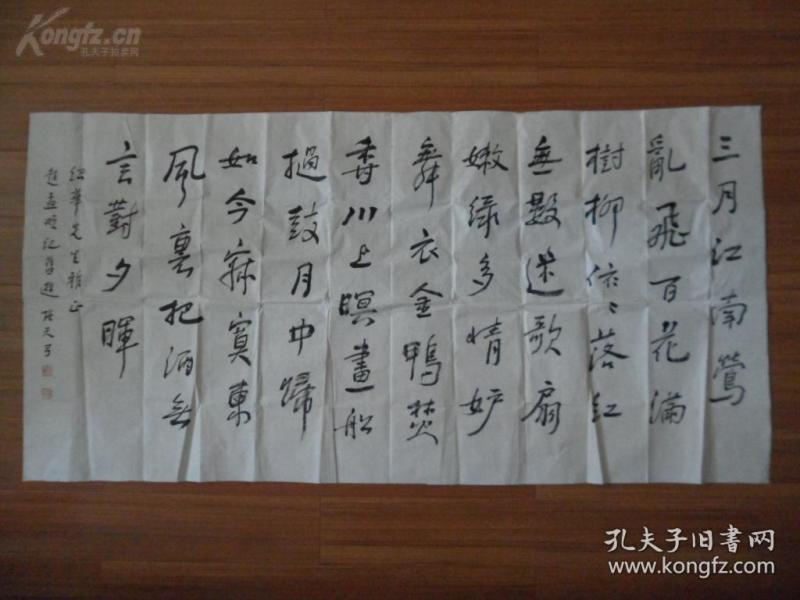 三月江南鶯
亂飛百花滿
樹柳依依落紅
無數迷歌扇
嫩綠多情妒
舞衣金鴨焚
香川上暝畫船
撾鼓月中歸
如今寂寞東
風裏把酒無
言對夕暉
紹華先生雅正
趙孟頫紀舊遊 張天弓
Kongfz.cn
孔夫子拍卖网
孔夫子旧书网
www.kongfz.com